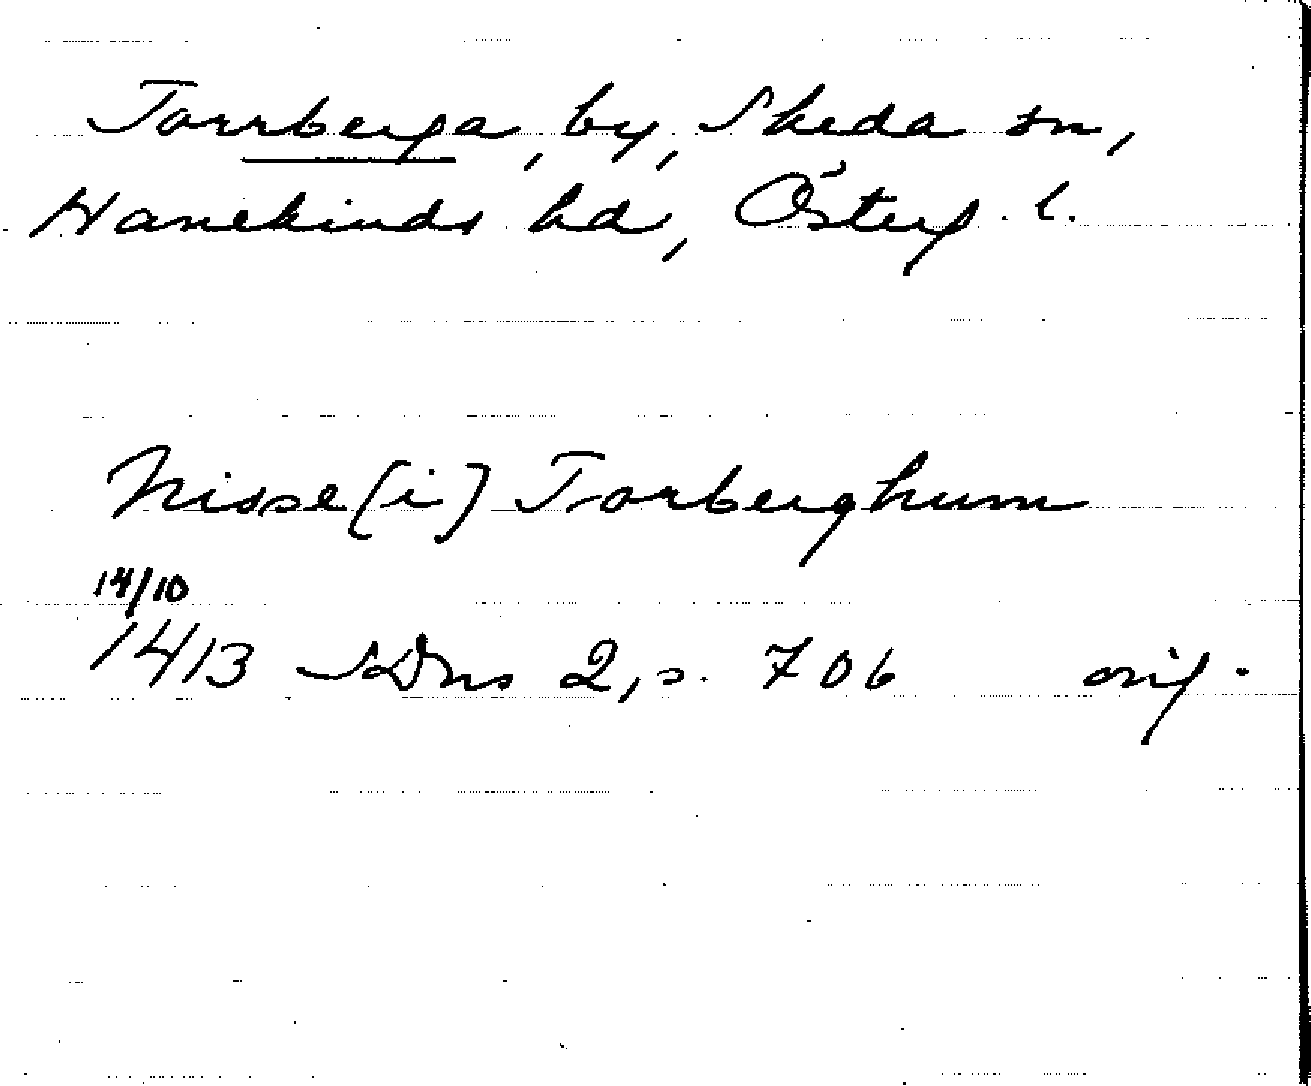 Torrberga, by, Skeda sn,
Hanekinds hd, Österg. l.
Nisse [i] Torberghum
14/10
1413 SDns 2, s. 706 orig.